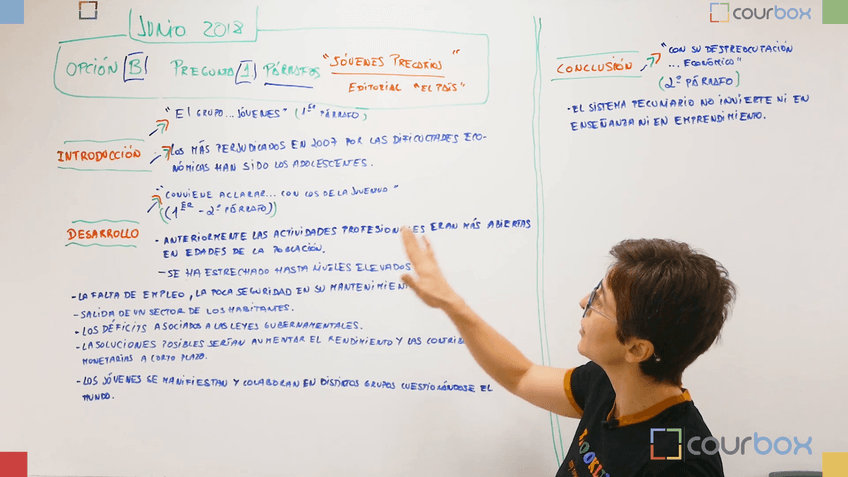 courbox
JUNIO 2018
OPCIÓN B PREGUNTA 1 PÁRRAFOS "JÓVENES PRECARIOS"
EDITORIAL "EL PAÍS"
"El GRUPO...JÓVENES" (1ER PÁRRAFO)
INTRODUCCIÓN
LOS MÁS PERJUDICADOS EN 2007 POR LAS DIFICULTADES ECO-
NÓMICAS HAN SIDO LOS ADOLESCENTES.
"CONVIENE ACLARAR... CON LOS DE LA JUVENTUD"
(1ER - 2º PÁRRAFO)
DESARROLLO
- ANTERIORMENTE LAS ACTIVIDADES PROFESIONALES ERAN MÁS ABIERTAS
EN EDADES DE LA POBLACIÓN.
- SE HA ESTRECHADO HASTA NIVELES ELEVADOS
- LA FALTA DE EMPLEO, LA POCA SEGURIDAD EN SU MANTENIMI
- SALIDA DE UN SECTOR DE LOS HABITANTES.
- LOS DÉFICITS ASOCIADOS A LAS LEYES GUBERNAMENTALES.
- LA SOLUCIONES POSIBLES SERÍAN AUMENTAR EL RENDIMIENTO Y LAS CONTRIB
MONETARIAS A CORTO PLAZO.
- LOS JÓVENES SE MANIFIESTAN Y COLABORAN EN DISTINTOS GRUPOS CUESTIONÁNDOSE EL
MUNDO.
CONCLUSIÓN
"CON SU DESTREOCUTACIÓN
... ECONÓMICO"
(2º PÁRRAFO)
- EL SISTEMA PECUNIARIO NO INVIERTE NI EN
ENSEÑANZA NI EN EMPRENDIMIENTO.
courbox